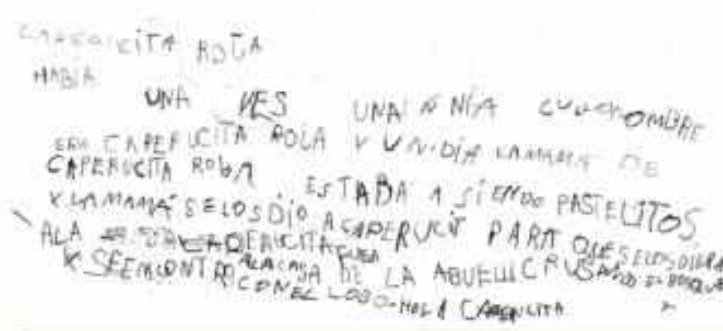 CAPERUCITA ROLA
HABIA
UNA VES UNA NIÑIA CULLO NOMBRE
ERA CAPERUCITA ROLA Y UN DIA LAMAMA DE
CAPERUCITA ROLA ESTABA ASIENDO PASTELITOS
Y LAMAMA SELOSDIO ACAPERUCIT PARA QUESELOSDIERA
ALA FUERA ALACASA DE LA ABUELLI CRUSANDO EL BOSQUE
Y SEEMCONTRO CONEL LOBO-HOLA CAPERUCITA